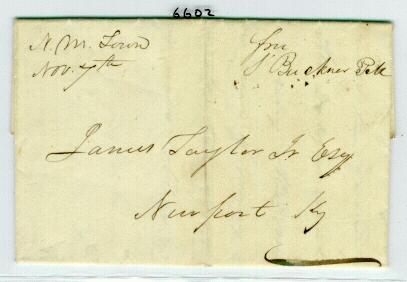 6602
N. M. Town
Nov. 7th
free
Buckner P.M.
James Taylor Jr Esq
Newport Ky